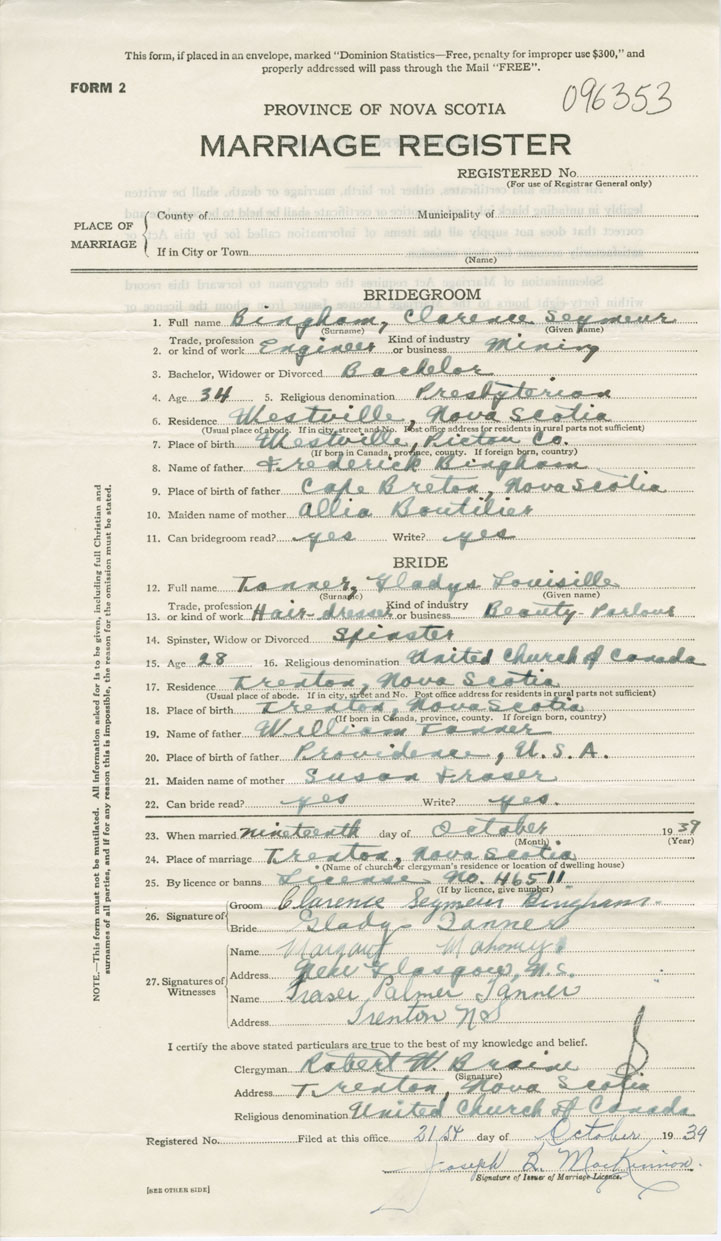 This form, if placed in an envelope, marked "Dominion Statistics—Free, penalty for improper use $300," and
properly addressed will pass through the Mail "FREE".
FORM 2
096353
PROVINCE OF NOVA SCOTIA
MARRIAGE REGISTER
REGISTERED No.
(For use of Registrar General only)
PLACE OF MARRIAGE
County of Municipality of
If in City or Town
(Name)
BRIDEGROOM
1. Full name Bingham, Clarence Seymeur
(Surname) (Given name)
2. Trade, profession or kind of work Engineer Kind of industry or business Mining
3. Bachelor, Widower or Divorced Bachelor
4. Age 34 5. Religious denomination Presbyterian
6. Residence Westville, Nova Scotia
(Usual place of abode. If in city, street and No. Post office address for residents in rural parts not sufficient)
7. Place of birth Westville, Pictou Co.
(If born in Canada, province, county. If foreign born, country)
8. Name of father Frederick Bingham
9. Place of birth of father Cape Breton, Nova Scotia
10. Maiden name of mother Allia Boutilier
11. Can bridegroom read? yes Write? yes
BRIDE
12. Full name Tanner, Gladys Louisille
(Surname) (Given name)
13. Trade, profession or kind of work Hair-dresser Kind of industry or business Beauty-Parlour
14. Spinster, Widow or Divorced Spinster
15. Age 28 16. Religious denomination United Church of Canada
17. Residence Trenton, Nova Scotia
(Usual place of abode. If in city, street and No. Post office address for residents in rural parts not sufficient)
18. Place of birth Trenton, Nova Scotia
(If born in Canada, province, county. If foreign born, country)
19. Name of father William Tanner
20. Place of birth of father Providence, U.S.A.
21. Maiden name of mother Susan Fraser
22. Can bride read? yes Write? yes.
23. When married nineteenth day of October 1939
(Month) (Year)
24. Place of marriage Trenton, Nova Scotia
(Name of church or clergyman's residence or location of dwelling house)
25. By licence or banns License No. 46511
(If by licence, give number)
26. Signature of
Groom Clarence Seymeur Bingham
Bride Gladys Tanner
27. Signatures of Witnesses
Name Margaret Mahoney
Address New Glasgow, N.S.
Name Fraser Palmer Tanner
Address Trenton NS
I certify the above stated particulars are true to the best of my knowledge and belief.
Clergyman Robert W. Braine
(Signature)
Address Trenton, Nova Scotia
Religious denomination United Church of Canada
Registered No. Filed at this office 21st day of October 1939
Joseph D. MacKinnon.
Signature of Issuer of Marriage Licence.
[SEE OTHER SIDE]
NOTE.—This form must not be mutilated. All information asked for is to be given, including full Christian and
surnames of all parties, and if for any reason this is impossible, the reason for the omission must be stated.